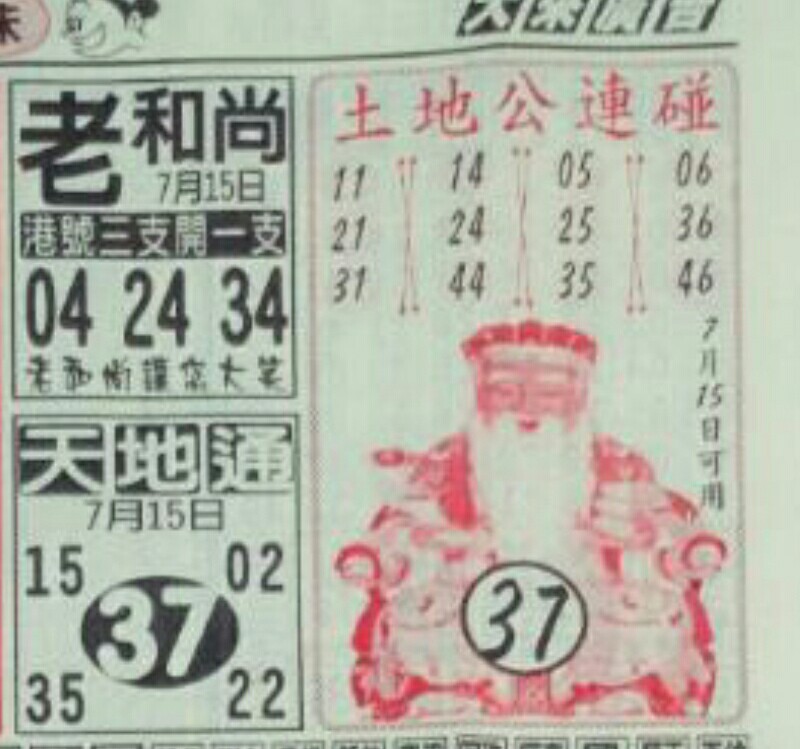 老和尚
7月15日
港號三支開一支
04 24 34
老和尚讓您大笑
天地通
7月15日
15 02
37
35 22
土地公連碰
11 14 05 06
21 24 25 36
31 44 35 46
7月15日可用
37